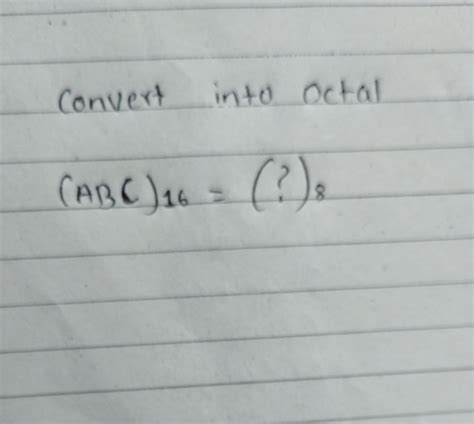 Convert into octal
(ABC)₁₆ = (?)₈